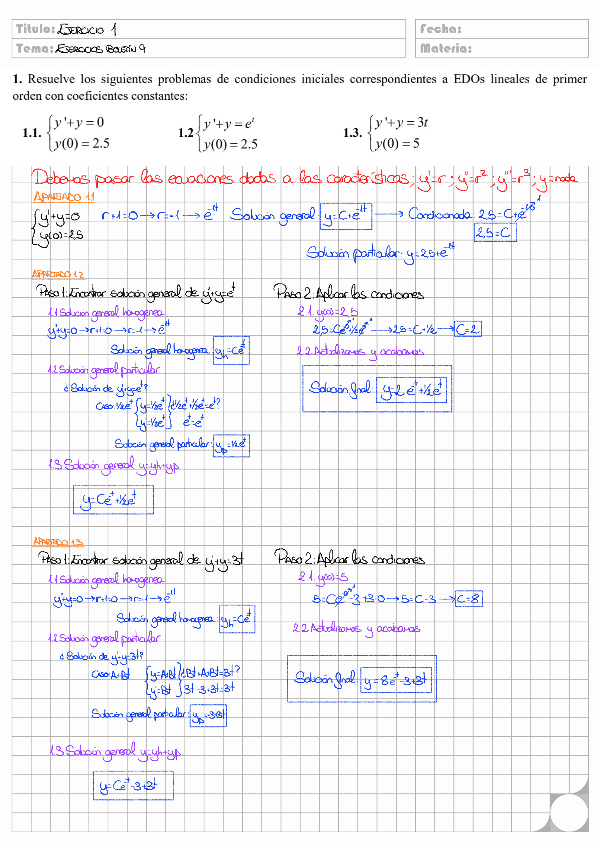 Título: EJERCICIO 1
Fecha:
Tema: EJERCICIOS BOLETÍN 9
Materia:
1. Resuelve los siguientes problemas de condiciones iniciales correspondientes a EDOs lineales de primer
orden con coeficientes constantes:
1.1. { y'+y = 0 1.2 { y'+y = e^t 1.3. { y'+y = 3t
y(0) = 2.5 y(0) = 2.5 y(0) = 5
Debemos pasar las ecuaciones dadas a las características; y'=r ; y''=r² ; y'''=r³ ; y=nada
APARTADO 1.1
{ y'+y=0 r+1=0 → r=-1 → e^-1t Solución general y=C+e^-1t → Condicionada 2.5=C+e^-1·0
y(0)=2.5 2.5=C
Solución particular: y=2.5+e^-1t
APARTADO 1.2
Paso 1: Encontrar solución general de y'+y=e^t
1.1 Solución general homogenea
y'+y=0 → r+1=0 → r=-1 → e^-1t
Solución general homogenea: y_h=Ce^-t
1.2 Solución general particular
¿Solución de y'+y=e^t?
Caso 1/2e^t { y=1/2e^t } ¿1/2e^t+1/2e^t=e^t?
y'=1/2e^t e^t=e^t
Solución general particular: y_p=1/2e^t
1.3 Solución general y=yh+yp
y=Ce^-t+1/2e^t
Paso 2: Aplicar las condiciones
2.1. y(0)=2.5
2.5=Ce^-0+1/2e^0 → 2.5=C+1/2 → C=2
2.2 Actualizamos y acabamos
Solución final: y=2e^-t+1/2e^t
APARTADO 1.3
Paso 1: Encontrar solución general de y'+y=3t
1.1 Solución general homogenea
y'+y=0 → r+1=0 → r=-1 → e^-1t
Solución general homogenea: y_h=Ce^-t
1.2 Solución general particular
¿Solución de y'+y=3t?
Caso A+Bt
3t-3+3=3t
Solución general particular: y_p=-3+3t
1.3 Solución general y=yh+yp
y=Ce^-t-3+3t
Paso 2: Aplicar las condiciones
2.1. y(0)=5
5=Ce^-0-3+3·0 → 5=C-3 → C=8
2.2 Actualizamos y acabamos
Solución final: y=8e^-t-3+3t